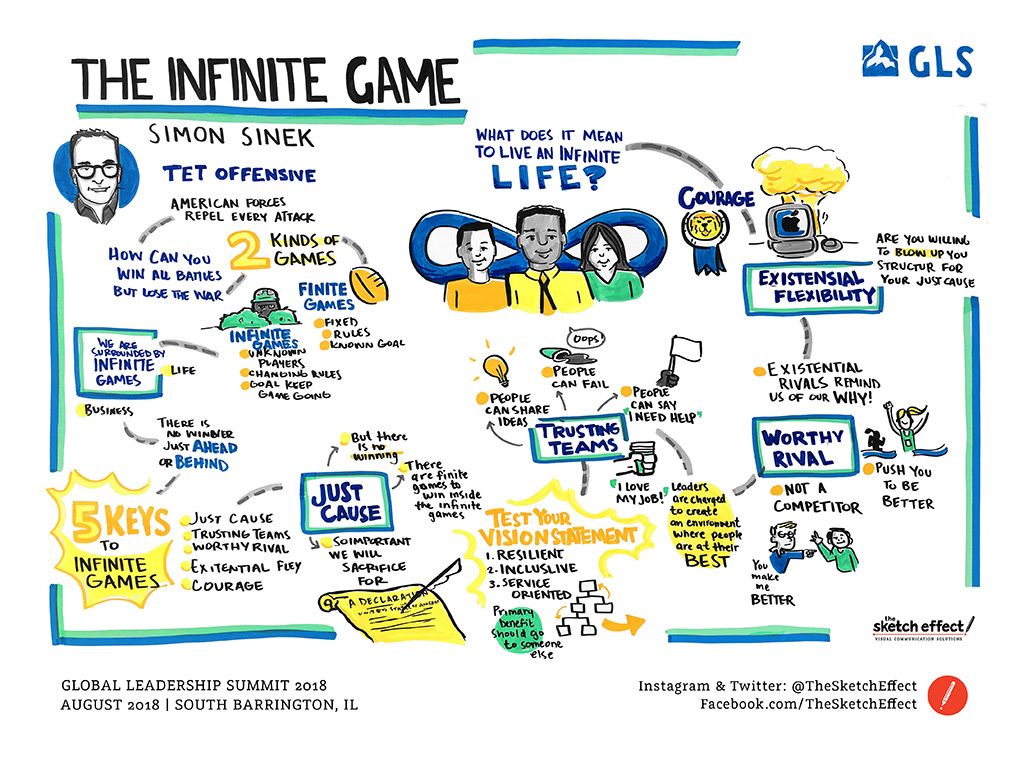 THE INFINITE GAME
SIMON SINEK
GLS
TET OFFENSIVE
AMERICAN FORCES
REPEL EVERY ATTACK
HOW CAN YOU
WIN ALL BATTLES
BUT LOSE THE WAR
2 KINDS OF
GAMES
FINITE
GAMES
FIXED
RULES
KNOWN GOAL
INFINITE
GAMES
UNKNOWN
PLAYERS
CHANGING RULES
GOAL KEEP
GAME GOING
WE ARE
SURROUNDED BY
INFINITE
GAMES
LIFE
BUSINESS
THERE IS
NO WINNER
JUST AHEAD
OR BEHIND
5 KEYS
TO
INFINITE
GAMES
JUST CAUSE
TRUSTING TEAMS
WORTHY RIVAL
EXITENTIAL FLEY
COURAGE
JUST
CAUSE
But there
is no
winning
There
are finite
games to
win inside
the infinite
games
SO IMPORTANT
WE WILL
SACRIFICE
FOR
A DECLARATION
TEST YOUR
VISION STATEMENT
1. RESILIENT
2. INCLUSIVE
3. SERVICE
ORIENTED
Primary
benefit
should go
to someone
else
TRUSTING
TEAMS
PEOPLE
CAN SHARE
IDEAS
OOPS!
PEOPLE
CAN FAIL
PEOPLE
CAN SAY
"I NEED HELP"
"I LOVE
MY JOB!"
Leaders
are charged
to create
an environment
where people
are at their
BEST
WORTHY
RIVAL
NOT A
COMPETITOR
PUSH YOU
TO BE
BETTER
You
make
me
BETTER
EXISTENTIAL
RIVALS REMIND
US OF OUR WHY!
EXISTENSIAL
FLEXIBILITY
ARE YOU WILLING
TO BLOW UP YOU
STRUCTUR FOR
YOUR JUST CAUSE
COURAGE
WHAT DOES IT MEAN
TO LIVE AN INFINITE
LIFE?
the
sketch effect!
VISUAL COMMUNICATION SOLUTIONS
GLOBAL LEADERSHIP SUMMIT 2018
AUGUST 2018 | SOUTH BARRINGTON, IL
Instagram & Twitter: @TheSketchEffect
Facebook.com/TheSketchEffect